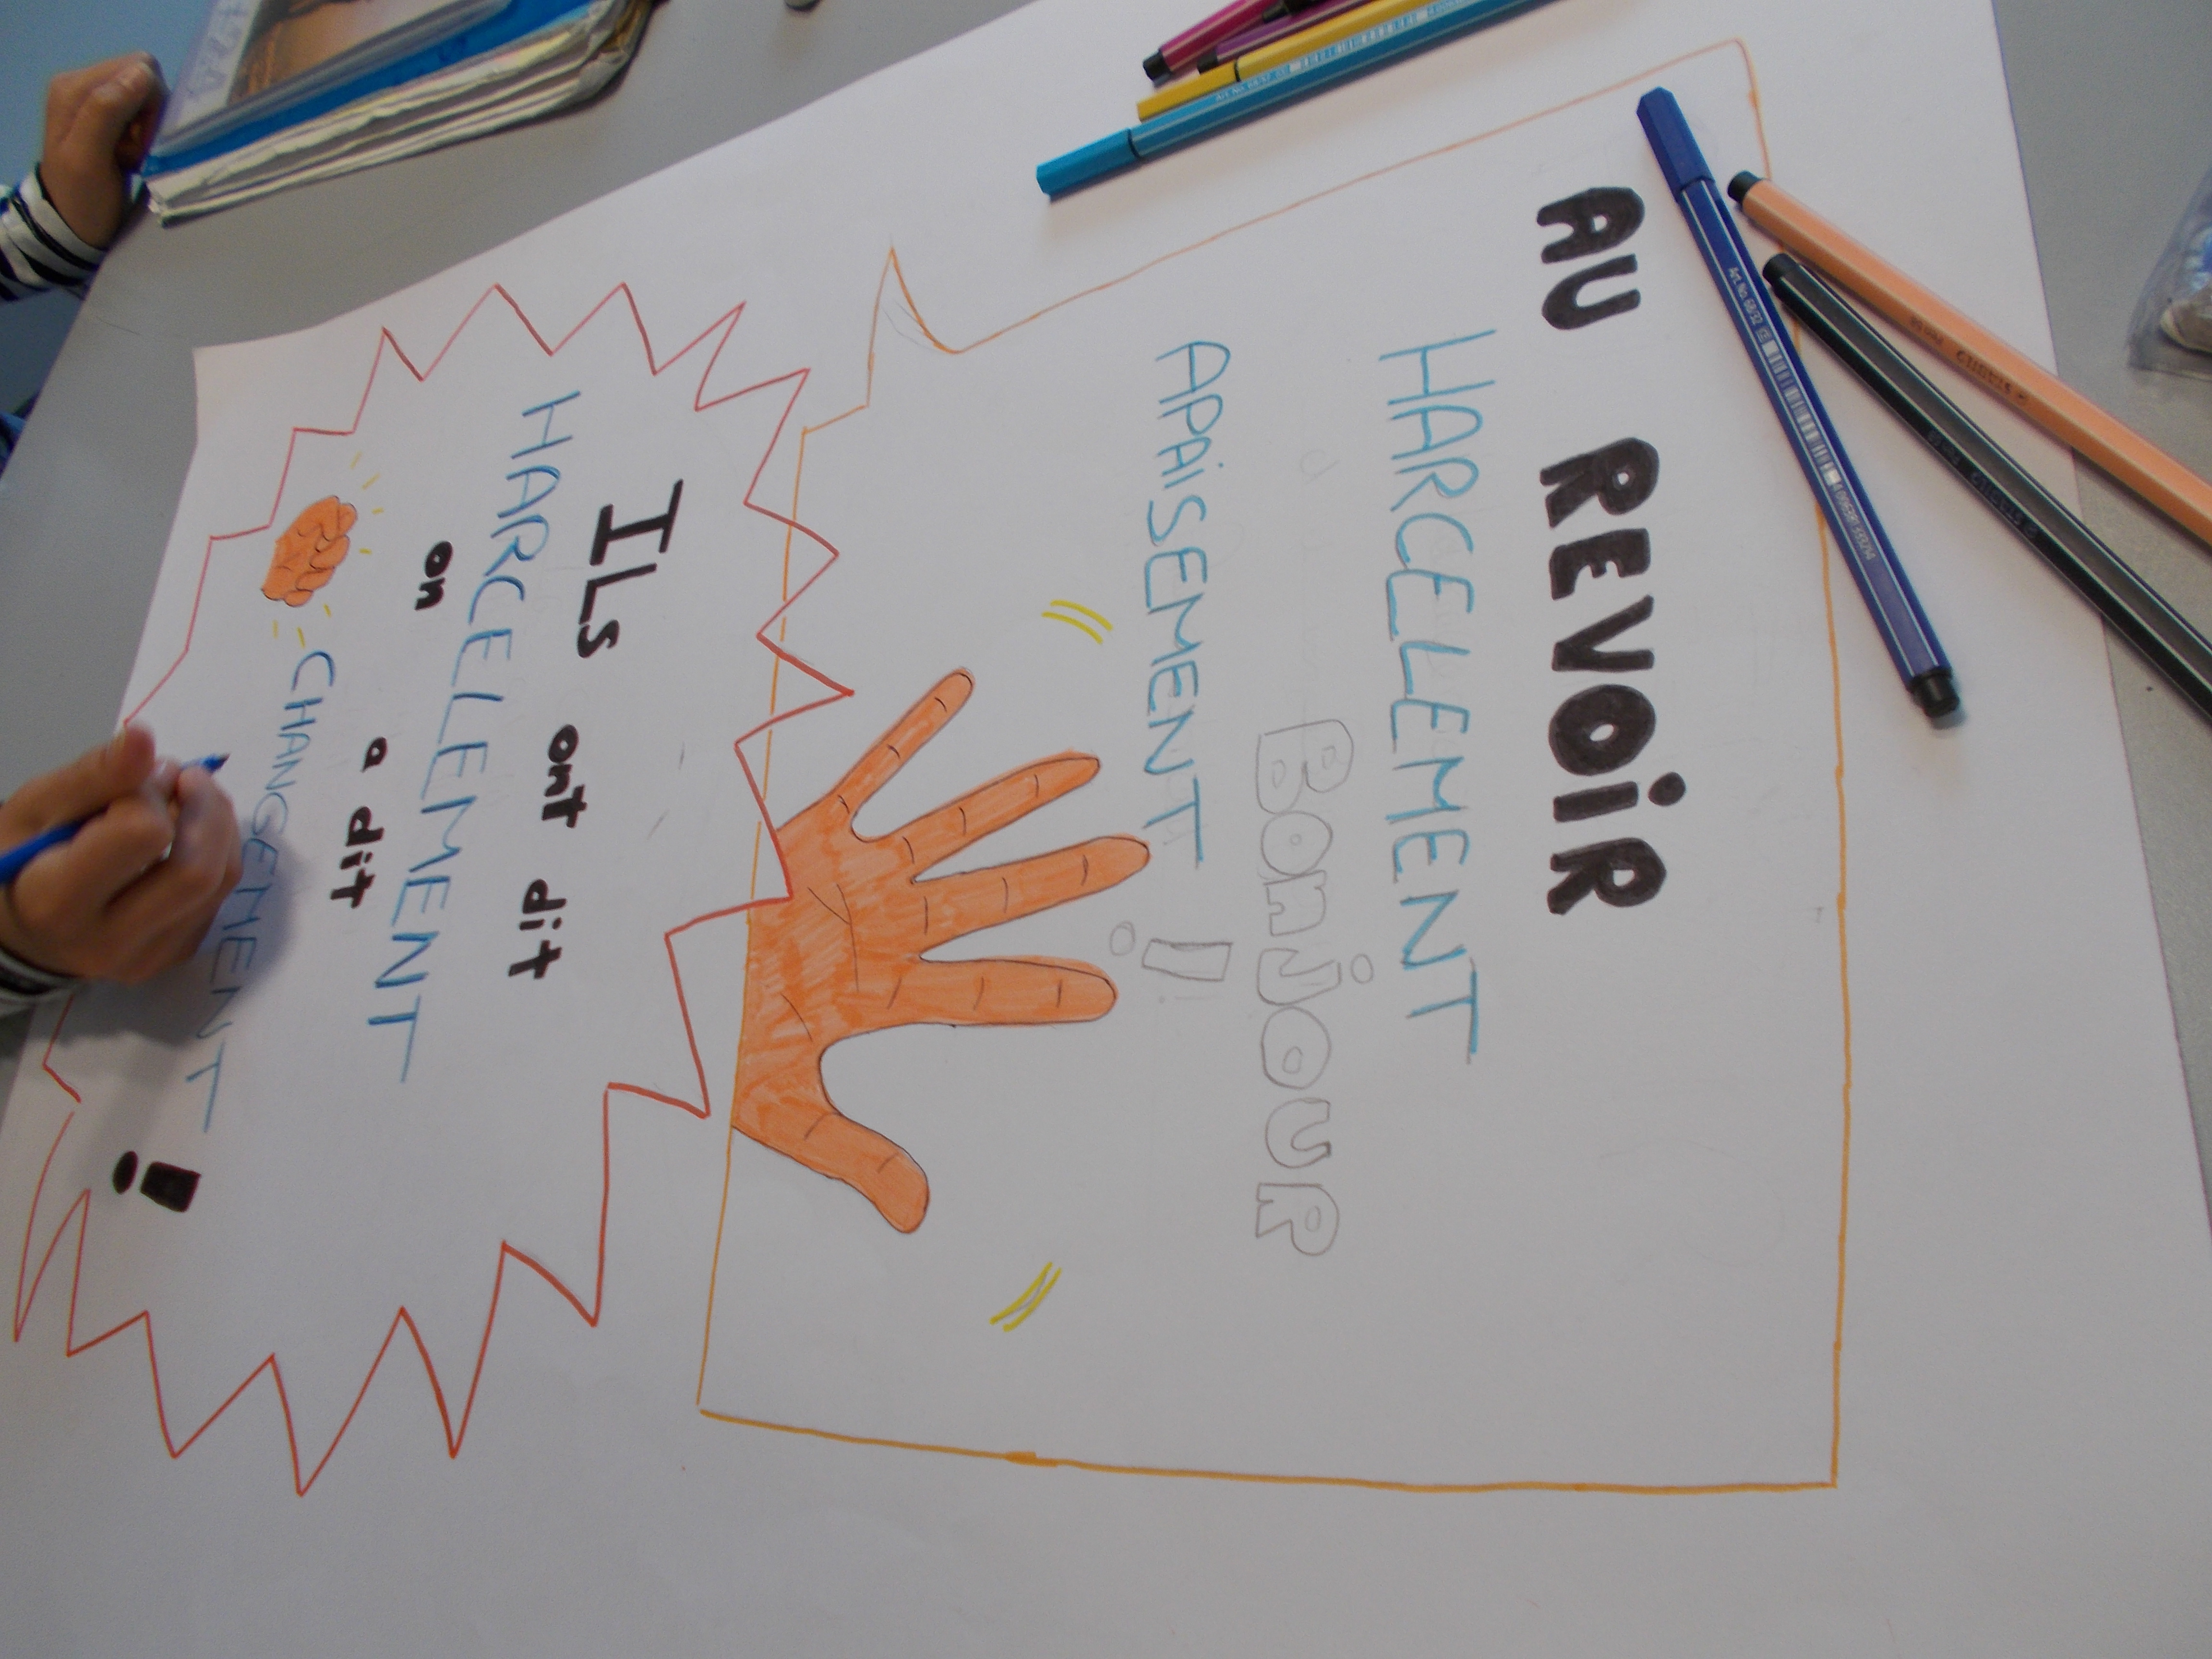 AU REVOIR
HARCELLEMENT
BONJOUR
APAISEMENT !
ILs ont dit
HARCELLEMENT
on a dit
CHANGEMENT !